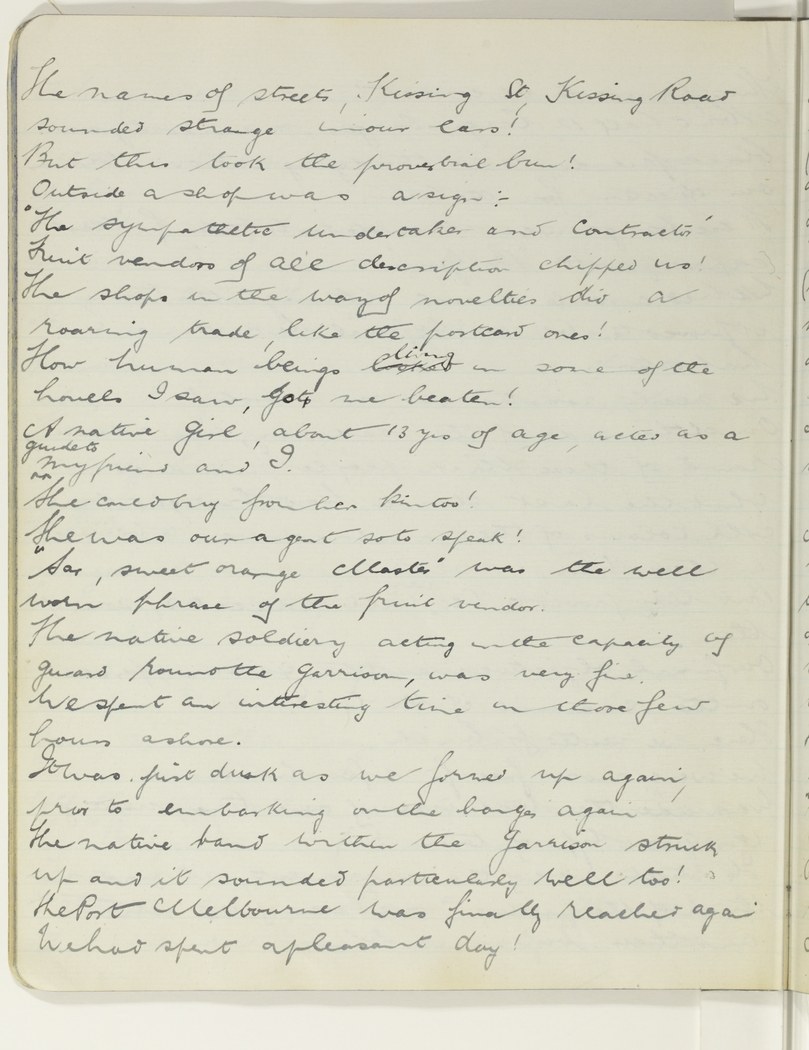 The names of streets, Kissing St, Kissing Road
sounded strange in our ears!
But this took the proverbial bun!
Outside a shop was a sign:-
"The sympathetic undertaker and contractor"
Fruit vendors of all description chipped us!
The shops in the way of novelties did a
roaring trade, like the postcard ones!
How human beings looked living in some of the
hovels I saw, gots me beaten!
A native girl, about 13 yrs of age, acted as a
guide to
my friend and I.
She could buy from her kin too!
She was our agent so to speak!
"Sar, sweet orange Master" was the well
worn phrase of the fruit vendor.
The native soldiery acting in the capacity of
guard round the Garrison, was very fine.
We spent an interesting time in those few
hours ashore.
It was just dusk as we formed up again,
prior to embarking on the barges again
The native band within the Garrison struck
up and it sounded particularly well too!
The Port Melbourne was finally reached again
We had spent a pleasant day!